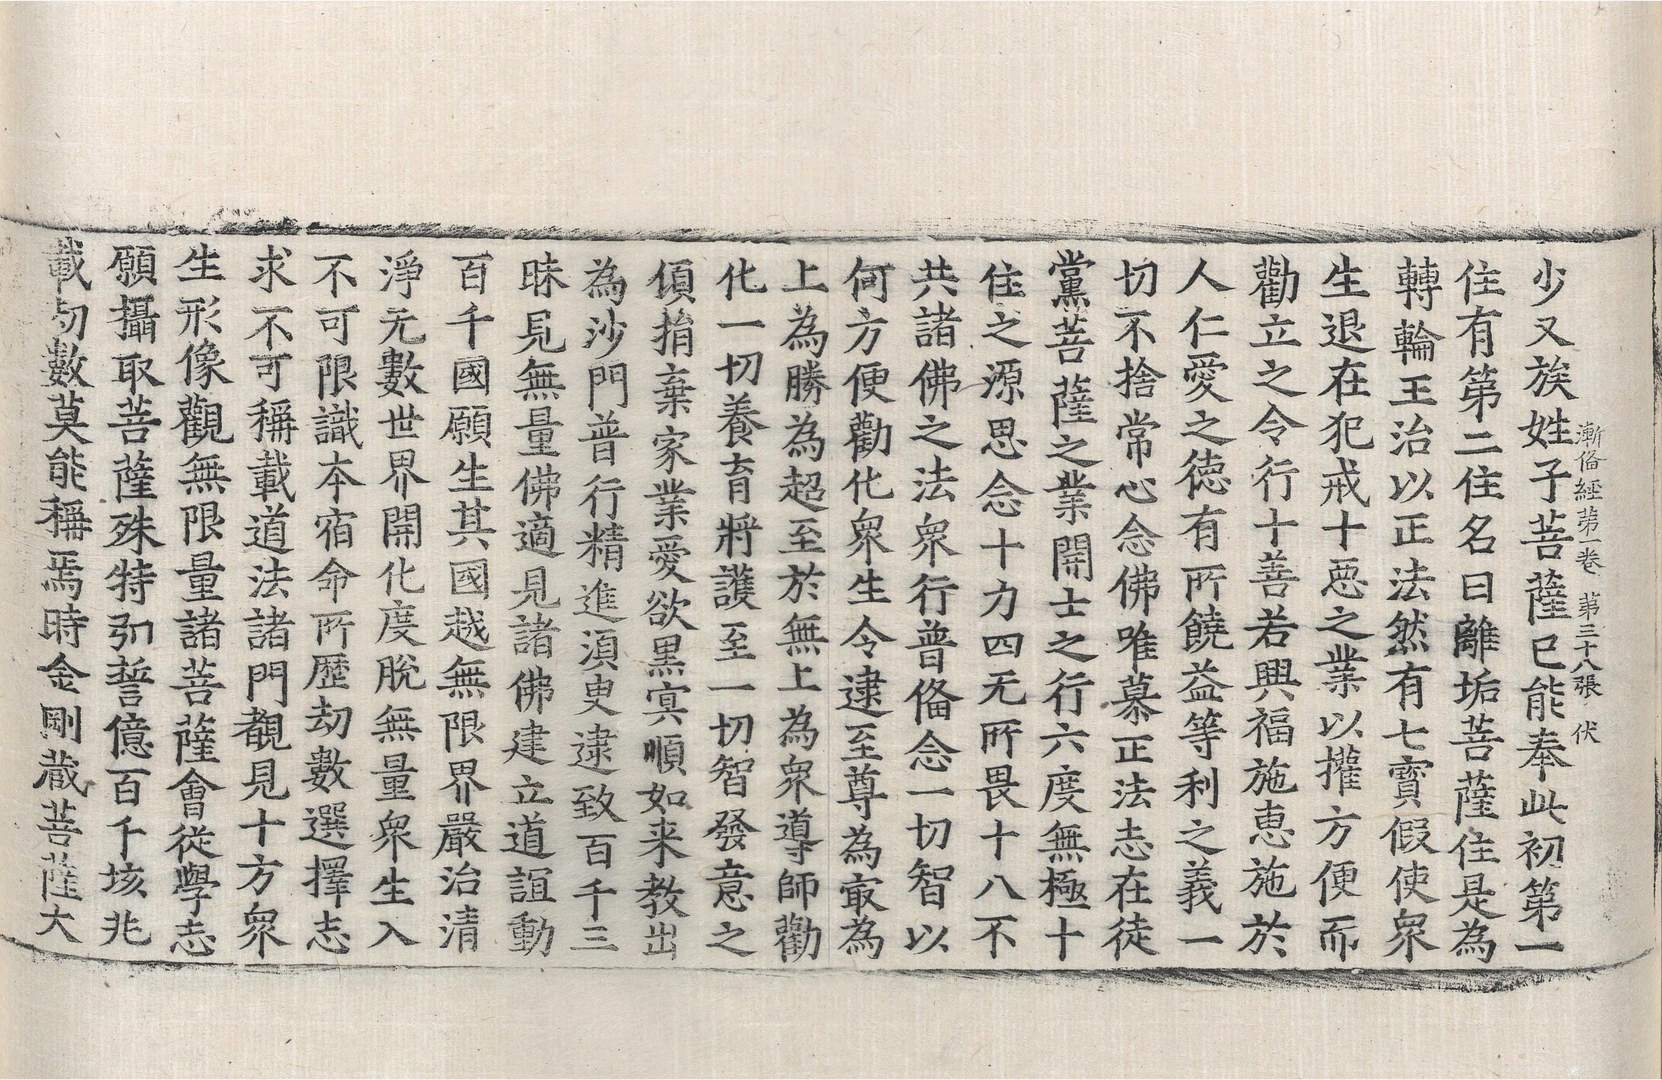 漸俻經第一卷 第三十八張 伏
少又族姓子菩薩已能奉此初第一
住有第二住名曰離垢菩薩住是為
轉輪王治以正法然有七寳假使衆
生退在犯戒十惡之業以權方便而
勸立之令行十善若興福施惠施於
人仁愛之徳有所饒益等利之義一
切不捨常心念佛唯慕正法志在徒
黨菩薩之業開士之行六度無極十
住之源思念十力四无所畏十八不
共諸佛之法衆行普俻念一切智以
何方便勸化衆生令逮至尊為㝡為
上為勝為超至於無上為衆導師勸
化一切養育將護至一切智發意之
傾捐棄家業愛欲黒㝠順如来教出
為沙門普行精進湏臾逮致百千三
昧見無量佛適見諸佛建立道誼動
百千國願生其國越無限界嚴治清
淨无數世界開化度脫無量衆生入
不可限識本宿命所歷劫數選擇志
求不可稱載道法諸門覩見十方衆
生形像觀無限量諸菩薩會從學志
願攝取菩薩殊特弘誓億百千垓兆
載劫數莫能稱焉時金剛蔵菩薩大